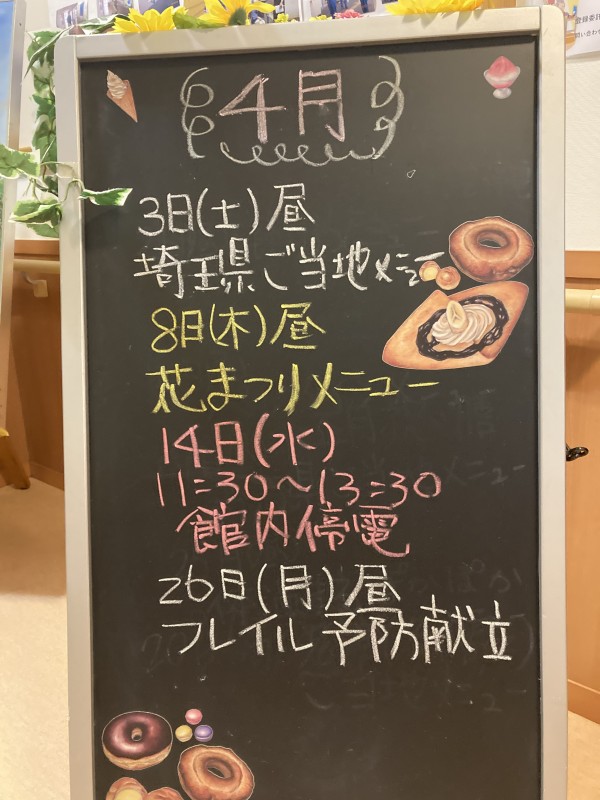 4月
3日(土)昼
埼玉県ご当地メニュー
8日(木)昼
花まつりメニュー
14日(水)
11:30〜13:30
館内停電
26日(月)昼
フレイル予防献立